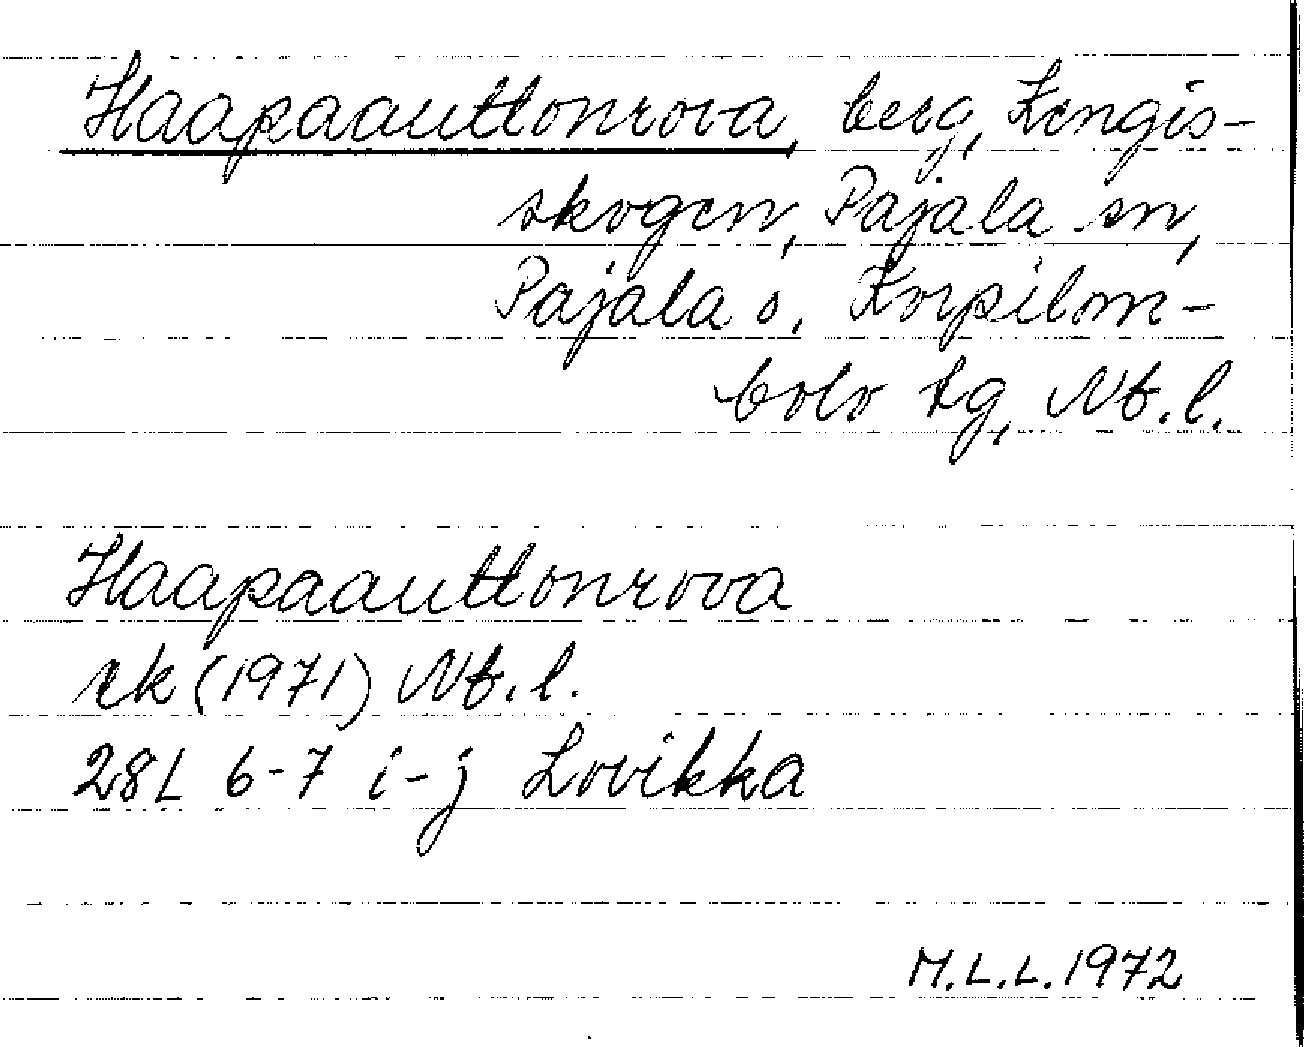 Haapaauttonrova, berg, Kengis-
skogen, Pajala sn,
Pajala o. Korpilom-
bolo tg, Nb.l.
Haapaauttonrova
rk (1971) Nb.l.
28L 6-7 i-j Lovikka
M.L.L. 1972